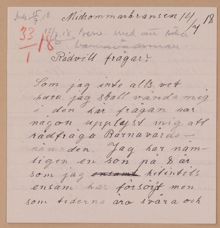 Midsommarkransen 14/4 18
33
1 18
Rådvill frågar!
Som jag inte alls vet
huru jag skall vända mig
i den här frågan har
någon upplyst mig att
rådfråga Barnavårds-
nämnden. Jag har näm-
ligen en son på 8 år
som jag hitintils
ensam har försörjt men
som tiderna äro svåra och